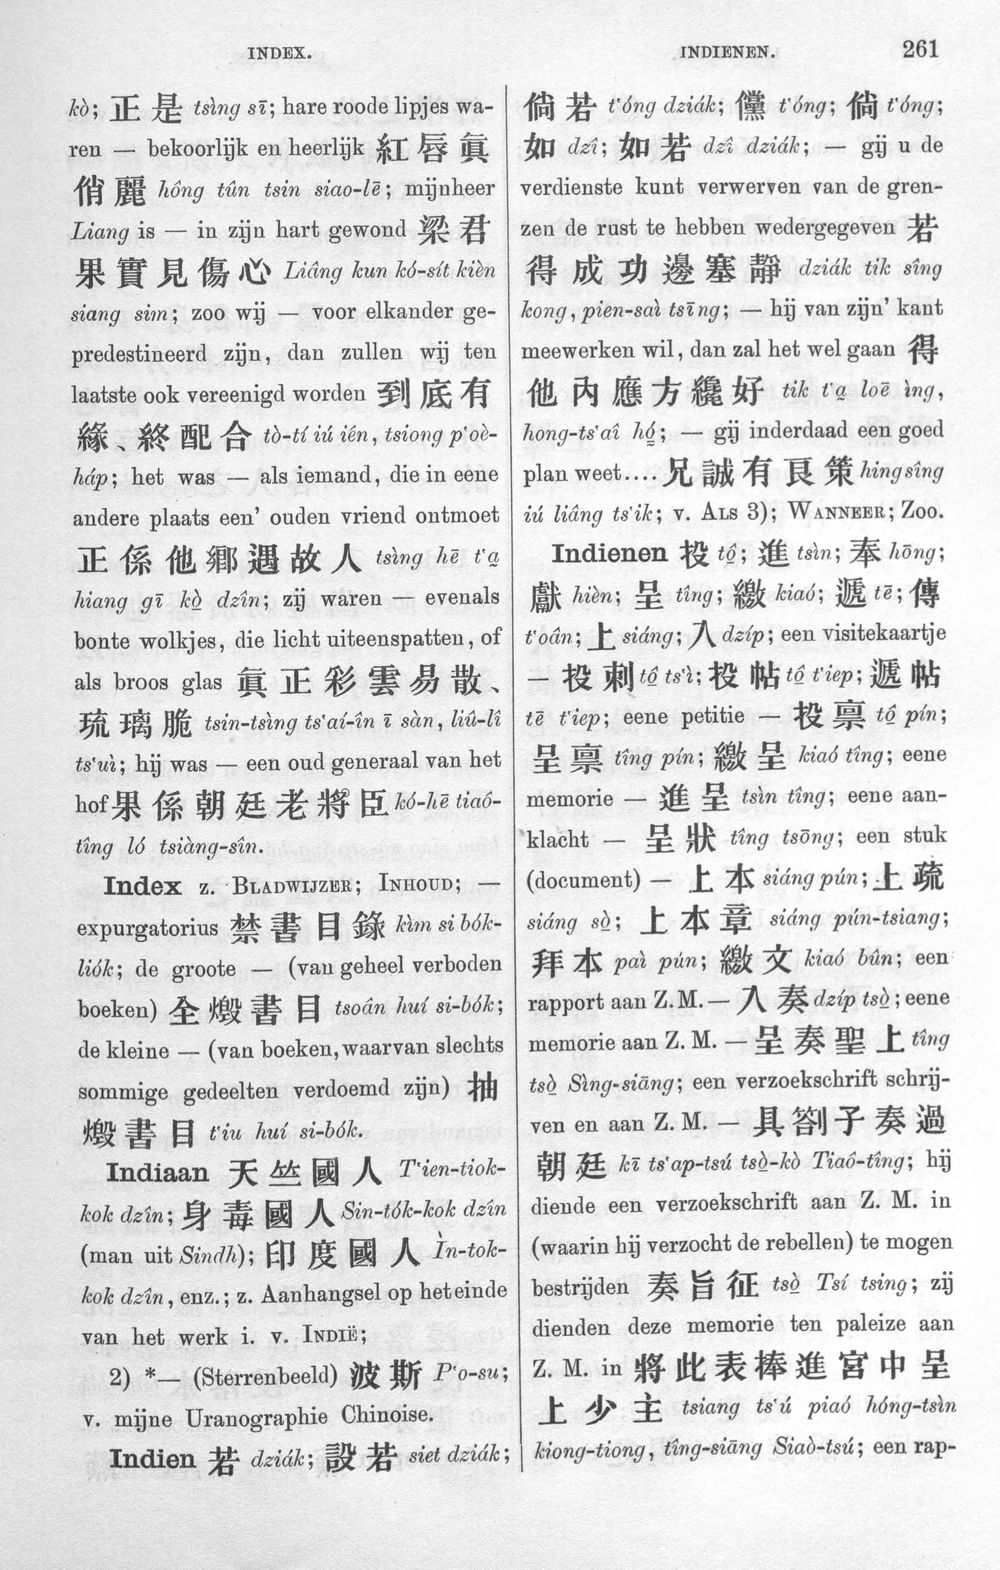 INDEX.
INDIENEN.
261
kò; 正是 tsìng sī; hare roode lipjes wa-
ren — bekoorlijk en heerlijk 紅唇眞
俏麗 hông tûn tsin siao-lē; mijnheer
Liang is — in zijn hart gewond 梁君
果實見傷心 Liâng kun kó-sít kièn
siang sim; zoo wij — voor elkander ge-
predestineerd zijn, dan zullen wij ten
laatste ook vereenigd worden 到底有
緣、終配合 tò-tí iú iên, tsiong p'oè-
háp; het was — als iemand, die in eene
andere plaats een' ouden vriend ontmoet
正係他鄉遇故人 tsìng hē t'a̤
hiang gī kò̤ dzîn; zij waren — evenals
bonte wolkjes, die licht uiteenspatten, of
als broos glas 眞正彩雲易散、
琉璃脆 tsin-tsìng ts'aí-în ī sàn, liû-lî
ts'uì; hij was — een oud generaal van het
hof 果係朝廷老將臣 kó-hē tiaô-
tîng ló tsiàng-sîn.
Index z. Bladwijzer; Inhoud; —
expurgatorius 禁書目錄 kìm si bók-
liók; de groote — (van geheel verboden
boeken) 全燬書目 tsoân huí si-bók;
de kleine — (van boeken, waarvan slechts
sommige gedeelten verdoemd zijn) 抽
燬書目 t'iu huí si-bók.
Indiaan 天竺國人 T'ien-tiok-
kok dzîn; 身毒國人 Sin-tók-kok dzîn
(man uit Sindh); 印度國人 Ìn-tok-
kok dzîn, enz.; z. Aanhangsel op het einde
van het werk i. v. Indië;
2) *— (Sterrenbeeld) 波斯 P'o-su;
v. mijne Uranographie Chinoise.
Indien 若 dziák; 設若 siet dziák;
倘若 t'óng dziák; 儻 t'óng; 倘 t'óng;
如 dzî; 如若 dzî dziák; — gij u de
verdienste kunt verwerven van de gren-
zen de rust te hebben wedergegeven 若
得成功邊塞靜 dziák tik sîng
kong, pien-saì tsīng; — hij van zijn' kant
meewerken wil, dan zal het wel gaan 得
他內應方纔好 tik t'a̤ loē ìng,
hong-ts'aî hó̤; — gij inderdaad een goed
plan weet.... 兄誠有良策 hing sîng
iú liâng ts'ik; v. Als 3); Wanneer; Zoo.
Indienen 投 tô̤; 進 tsìn; 奉 hōng;
獻 hièn; 呈 tîng; 繳 kiaó; 遞 tē; 傳
t'oân; 上 siáng; 入 dzíp; een visitekaartje
— 投刺 tô̤ ts'ì; 投帖 tô̤ t'iep; 遞帖
tē t'iep; eene petitie — 投稟 tô̤ pín;
呈稟 tîng pín; 繳呈 kiaó tîng; eene
memorie — 進呈 tsìn tîng; eene aan-
klacht — 呈狀 tîng tsōng; een stuk
(document) — 上本 siáng pún; 上疏
siáng sò̤; 上本章 siáng pún-tsiang;
拜本 paì pún; 繳文 kiaó bûn; een
rapport aan Z. M. — 入奏 dzíp tsò̤; eene
memorie aan Z. M. — 呈奏聖上 tîng
tsò̤ Sìng-siāng; een verzoekschrift schrij-
ven en aan Z. M. — 具劄子奏過
朝廷 kī ts'ap-tsú tsò̤-kò Tiaô-tîng; hij
diende een verzoekschrift aan Z. M. in
(waarin hij verzocht de rebellen) te mogen
bestrijden 奏旨征 tsò̤ Tsí tsing; zij
dienden deze memorie ten paleize aan
Z. M. in 將此表捧進宮中呈
上少主 tsiang ts'ú piaó hóng-tsìn
kiong-tiong, tîng-siāng Siaò-tsú; een rap-